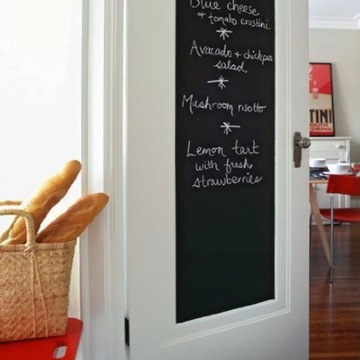 Blue cheese
+ tomato crostini
Avocado + chickpea
salad
Mushroom risotto
Lemon tart
with fresh
strawberries
TINI